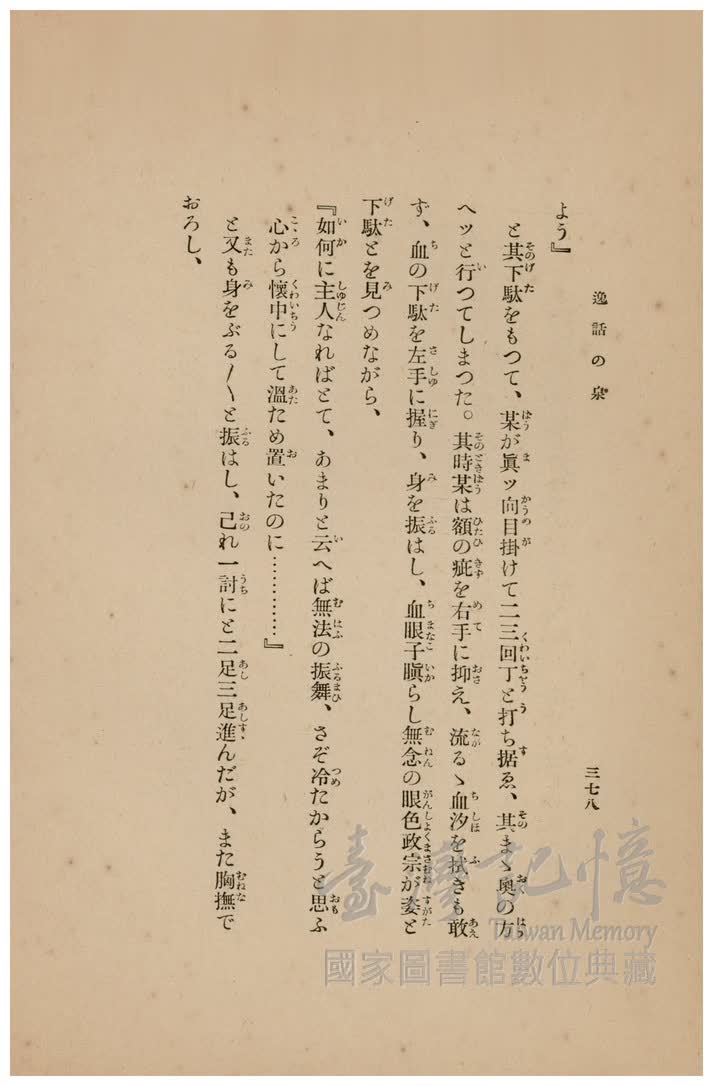 逸話の泉
三七八
よう』
と其下駄をもつて、某が眞ッ向目掛けて二三回丁と打ち据ゑ、其まゝ奧の方
へッと行つてしまつた。其時某は額の疵を右手に抑え、流るゝ血汐を拭きも敢
ず、血の下駄を左手に握り、身を振はし、血眼子瞋らし無念の眼色政宗が姿と
下駄とを見つめながら、
『如何に主人なればとて、あまりと云へば無法の振舞、さぞ冷たからうと思ふ
心から懷中にして溫ため置いたのに…………』
と又も身をぶる〳〵と振はし、己れ一討にと二足三足進んだが、また胸撫で
おろし、
臺灣記憶
Taiwan Memory
國家圖書館數位典藏